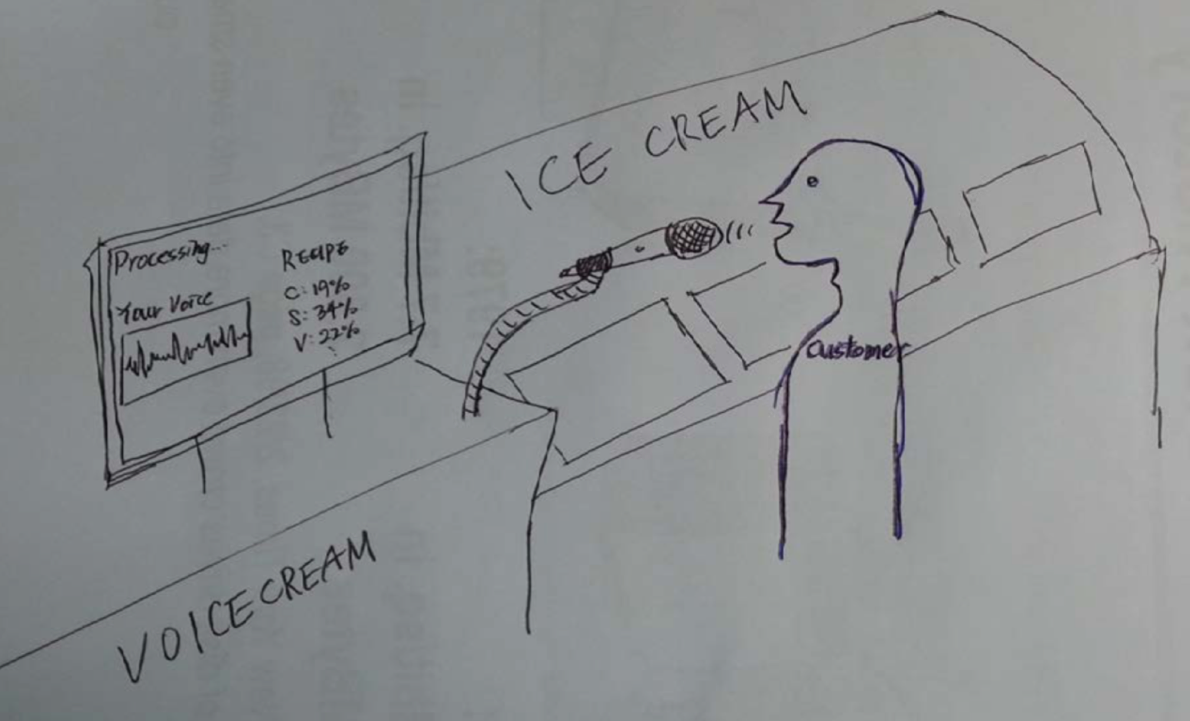 ICE CREAM
Processing...
Your Voice
RECIPE
C: 19%
S: 34%
V: 22%
Customer
VOICECREAM